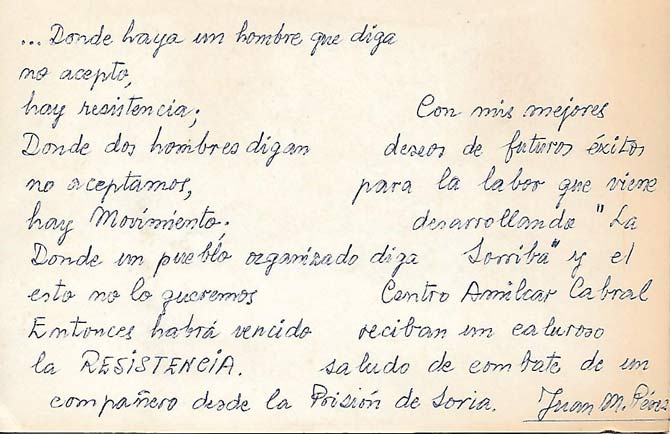 ... Donde haya un hombre que diga
no acepto,
hay resistencia;
Donde dos hombres digan
no aceptamos,
hay Movimiento;
Donde un pueblo organizado diga
esto no lo queremos
Entonces habrá vencido
la RESISTENCIA.
Con mis mejores
deseos de futuros éxitos
para la labor que viene
desarrollando "La
Sorriba" y el
Centro Amilcar Cabral
reciban un caluroso
saludo de combate de un
compañero desde la Prisión de Soria.
Juan M. Pérez